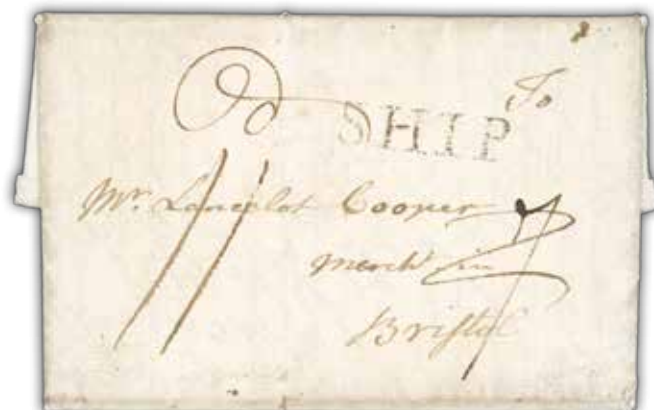 To
SHIP
Mr. Lancelot Cooper
Mercht in
Bristol